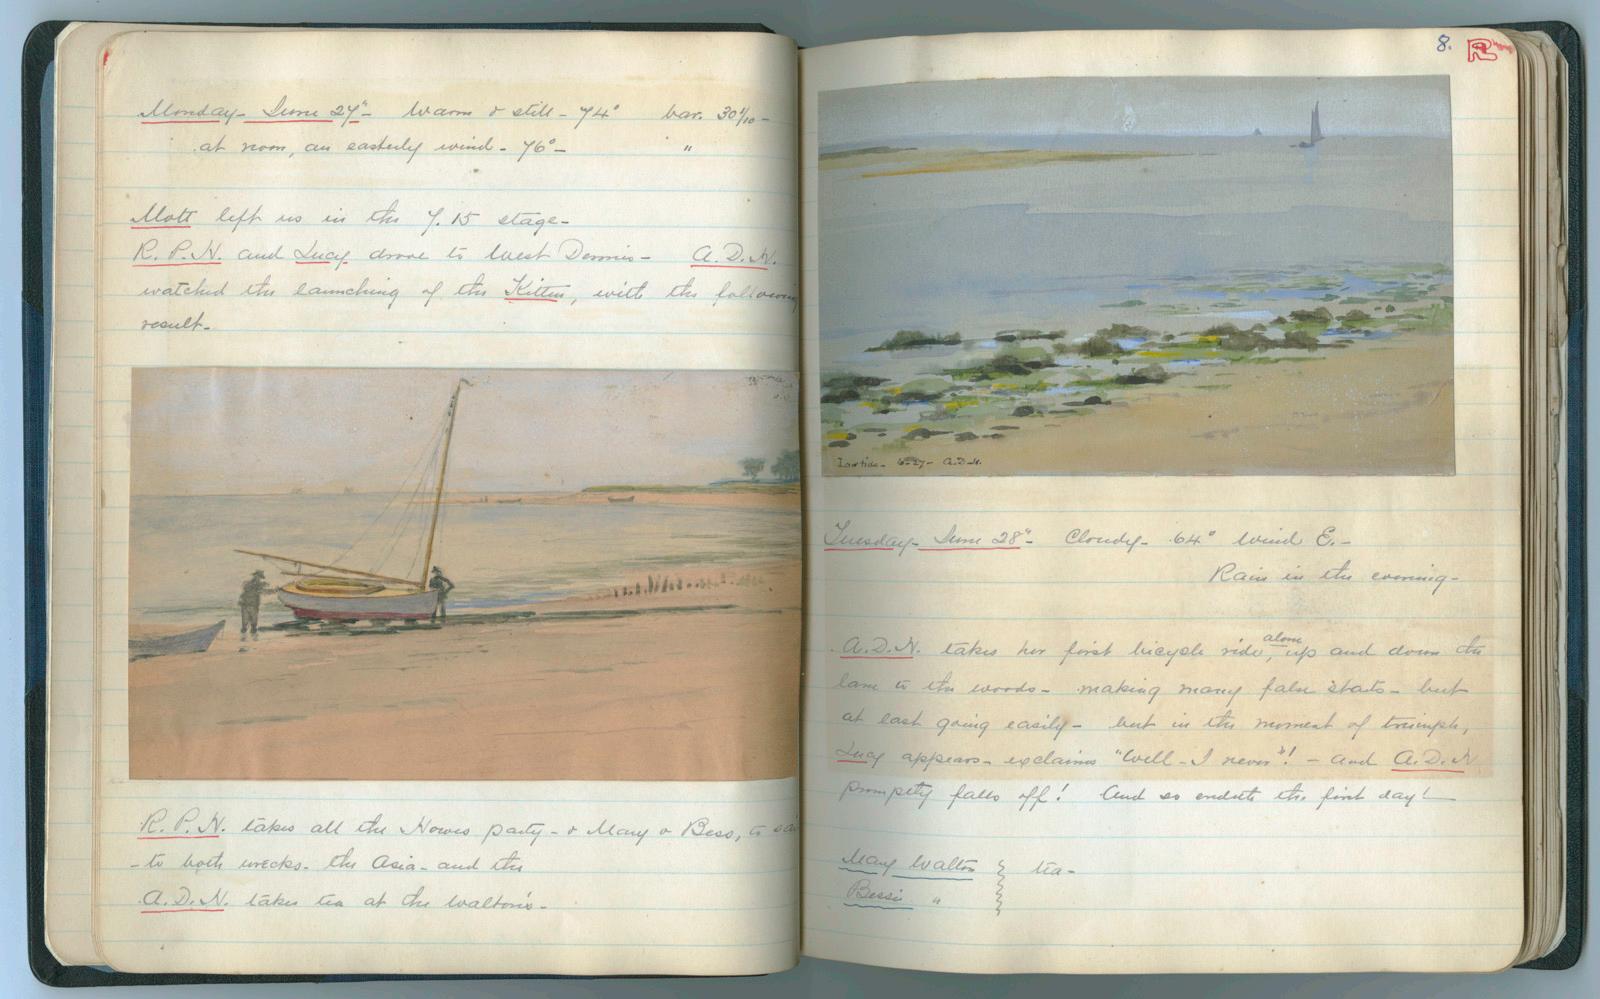 Monday - June 27" - Warm & still - 74° bar. 30 1/10 -
at noon, an easterly wind - 76° - "
Mott left us in the 7.15 stage -
R. P. N. and Lucy drove to West Dennis - A. D. N.
watched the launching of the Kitten, with the following
result -
R. P. N. takes all the Howes party - & Mary & Bess, to sail
- to both wrecks - the Asia - and the
A. D. N. takes tea at the Walton's -
8.
R
Low tide - 6-27 - A.D.N.
Tuesday - June 28" - Cloudy - 64° Wind E. -
Rain in the evening -
A. D. N. takes her first bicycle ride, alone, up and down the
lane to the woods - making many false starts - but
at last going easily - but in the moment of triumph,
Lucy appears - exclaims "Well - I never"! - and A. D. N
promptly falls off! And so endeth the first day! -
Mary Walton } tea -
Bessie "